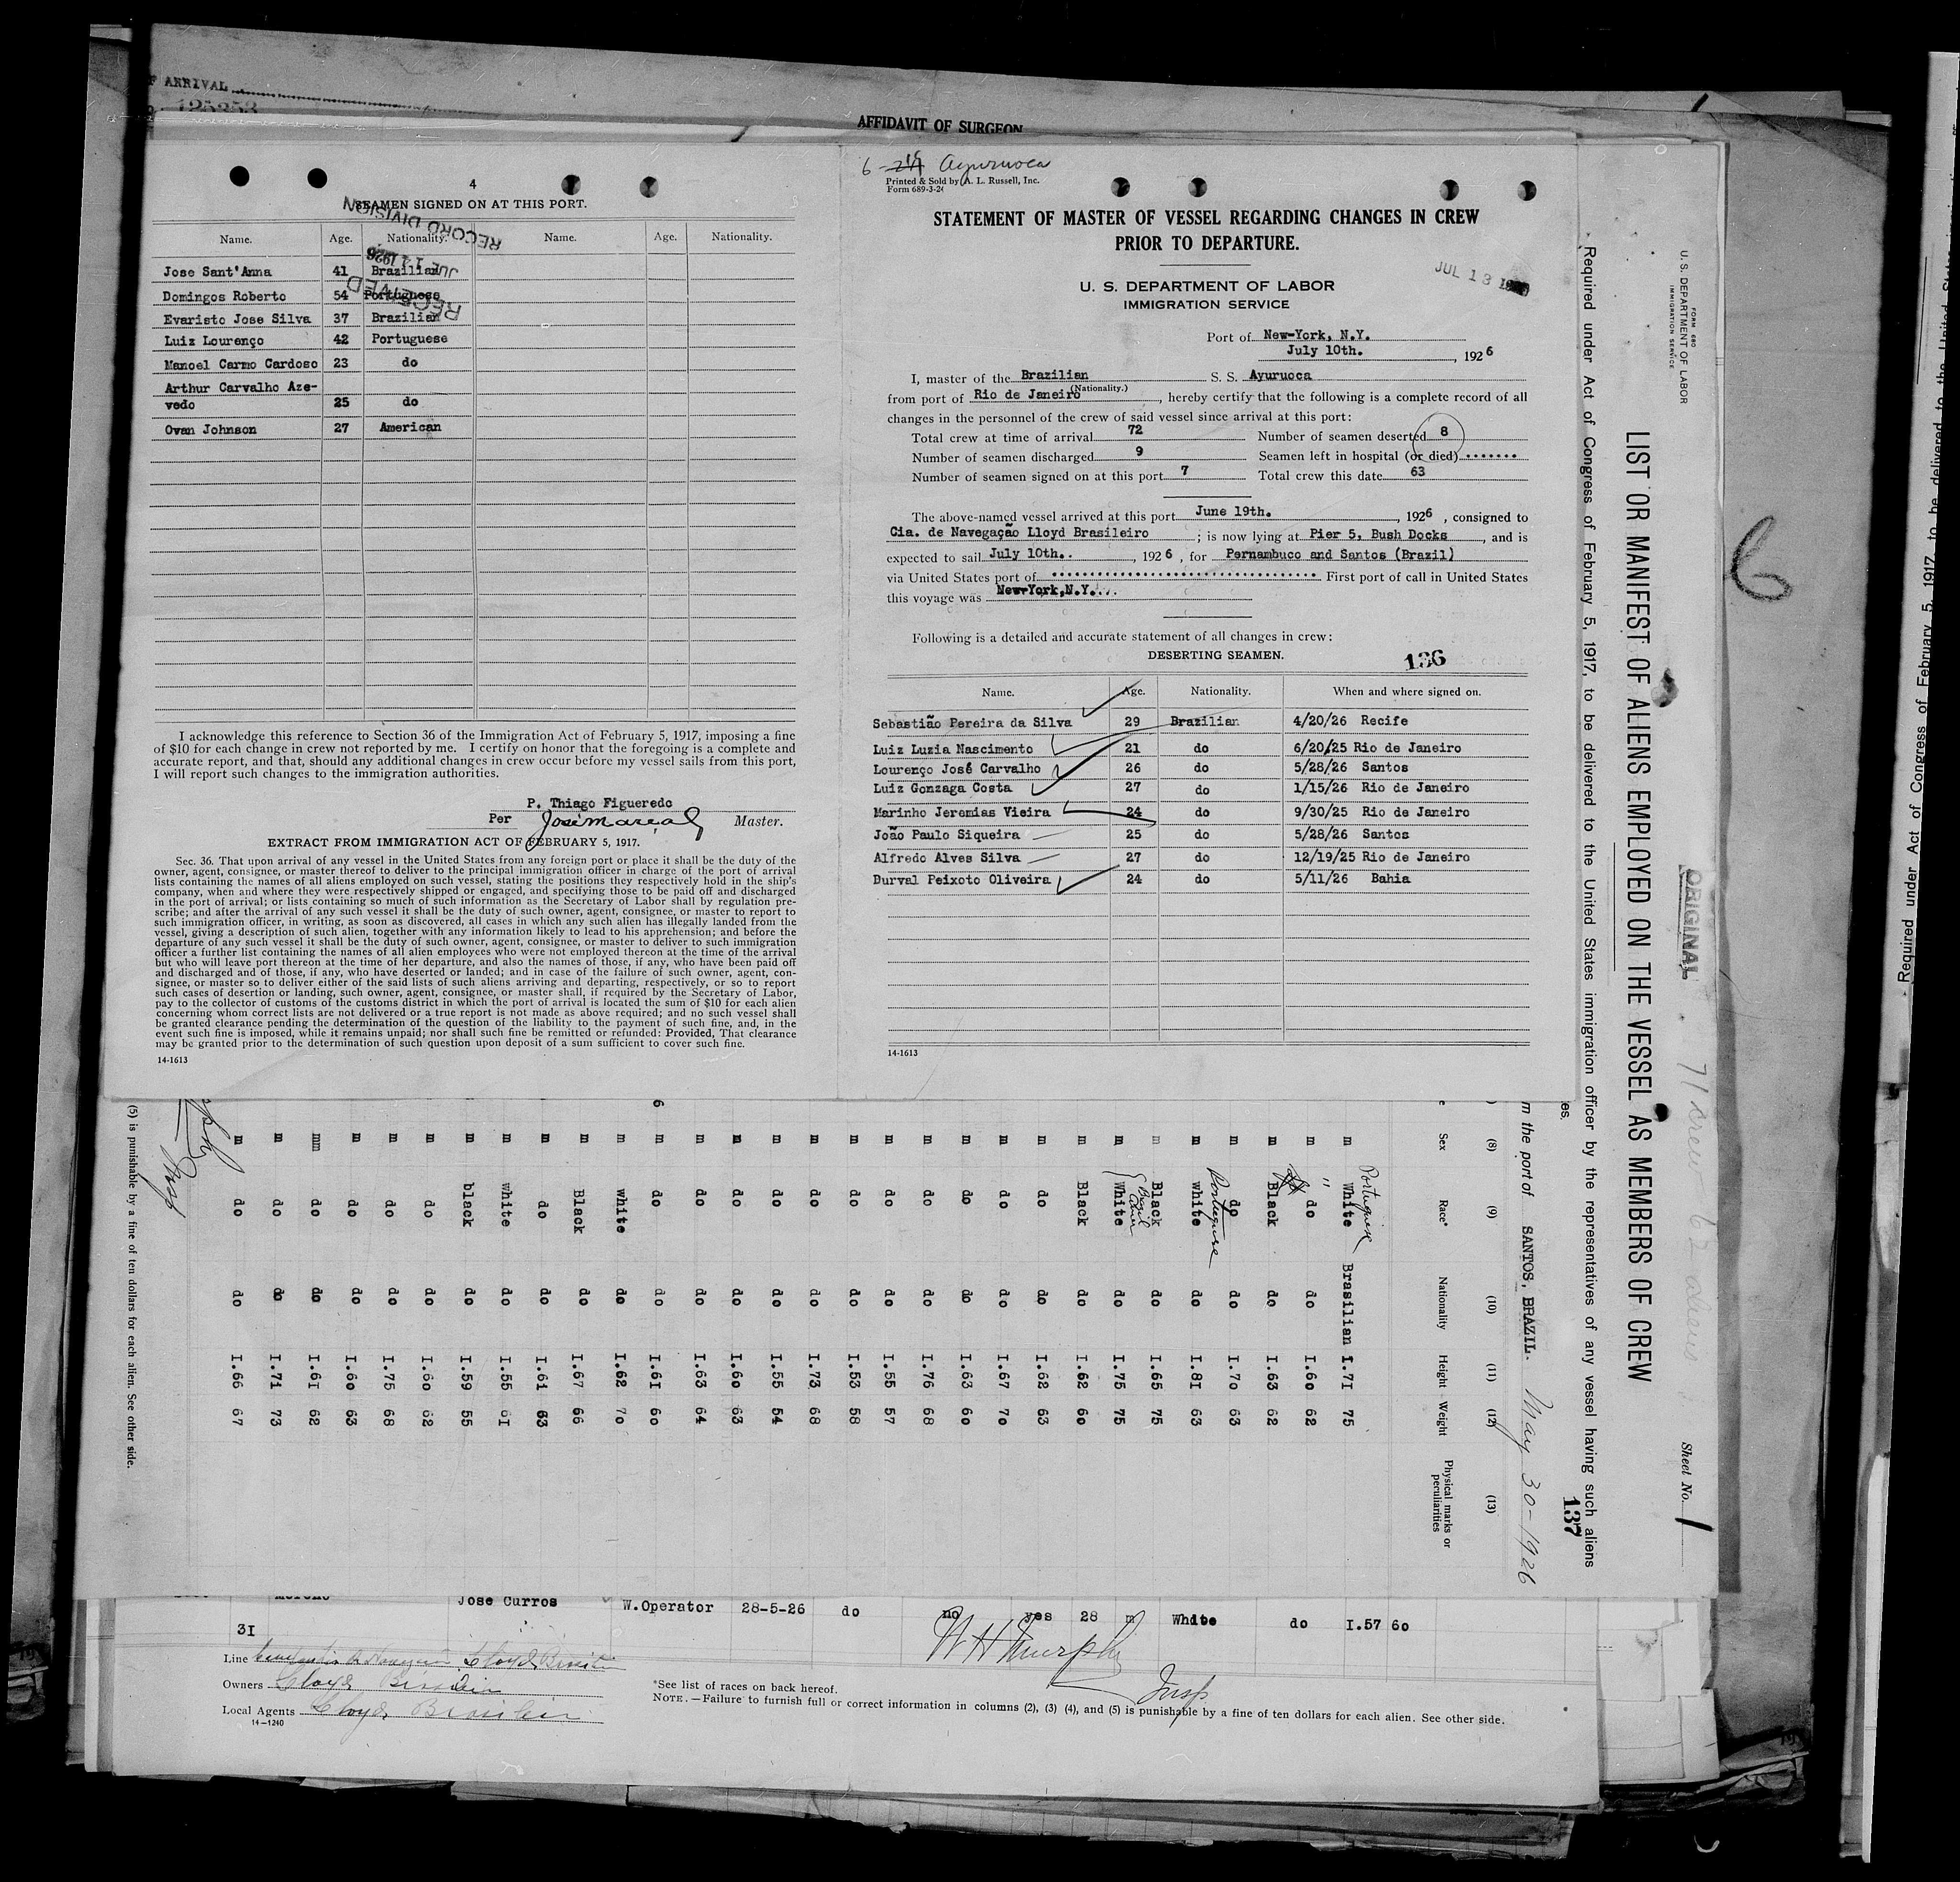 F ARRIVAL
125253
AFFIDAVIT OF SURGEON
4
SEAMEN SIGNED ON AT THIS PORT.
RECORD DIVISION
RECEIVED
Name. Age. Nationality. Name. Age. Nationality.
Jose Sant'Anna 41 Brazilian
Domingos Roberto 54 Portuguese
Evaristo Jose Silva 37 Brazilian
Luiz Lourenço 42 Portuguese
Manoel Carmo Cardoso 23 do
Arthur Carvalho Aze-
vedo 25 do
Ovan Johnson 27 American
I acknowledge this reference to Section 36 of the Immigration Act of February 5, 1917, imposing a fine
of $10 for each change in crew not reported by me. I certify on honor that the foregoing is a complete and
accurate report, and that, should any additional changes in crew occur before my vessel sails from this port,
I will report such changes to the immigration authorities.
P. Thiago Figueredo
Per José Marçal Master.
EXTRACT FROM IMMIGRATION ACT OF FEBRUARY 5, 1917.
Sec. 36. That upon arrival of any vessel in the United States from any foreign port or place it shall be the duty of the
owner, agent, consignee, or master thereof to deliver to the principal immigration officer in charge of the port of arrival
lists containing the names of all aliens employed on such vessel, stating the positions they respectively hold in the ship's
company, when and where they were respectively shipped or engaged, and specifying those to be paid off and discharged
in the port of arrival; or lists containing so much of such information as the Secretary of Labor shall by regulation pre-
scribe; and after the arrival of any such vessel it shall be the duty of such owner, agent, consignee, or master to report to
such immigration officer, in writing, as soon as discovered, all cases in which any such alien has illegally landed from the
vessel, giving a description of such alien, together with any information likely to lead to his apprehension; and before the
departure of any such vessel it shall be the duty of such owner, agent, consignee, or master to deliver to such immigration
officer a further list containing the names of all alien employees who were not employed thereon at the time of the arrival
but who will leave port thereon at the time of her departure, and also the names of those, if any, who have been paid off
and discharged and of those, if any, who have deserted or landed; and in case of the failure of such owner, agent, con-
signee, or master so to deliver either of the said lists of such aliens arriving and departing, respectively, or so to report
such cases of desertion or landing, such owner, agent, consignee, or master shall, if required by the Secretary of Labor,
pay to the collector of customs of the customs district in which the port of arrival is located the sum of $10 for each alien
concerning whom correct lists are not delivered or a true report is not made as above required; and no such vessel shall
be granted clearance pending the determination of the question of the liability to the payment of such fine, and, in the
event such fine is imposed, while it remains unpaid; nor shall such fine be remitted or refunded: Provided, That clearance
may be granted prior to the determination of such question upon deposit of a sum sufficient to cover such fine.
14-1613
6- Ayuruoca
Printed & Sold by A. L. Russell, Inc.
Form 689-3-26
STATEMENT OF MASTER OF VESSEL REGARDING CHANGES IN CREW
PRIOR TO DEPARTURE.
JUL 13
U. S. DEPARTMENT OF LABOR
IMMIGRATION SERVICE
Port of New-York, N.Y.
July 10th. , 1926
I, master of the Brazilian S. S. Ayuruoca
(Nationality.)
from port of Rio de Janeiro, hereby certify that the following is a complete record of all
changes in the personnel of the crew of said vessel since arrival at this port:
Total crew at time of arrival 72 Number of seamen deserted 8
Number of seamen discharged 9 Seamen left in hospital (or died).......
Number of seamen signed on at this port 7 Total crew this date 63
The above-named vessel arrived at this port June 19th. , 1926 , consigned to
Cia. de Navegação Lloyd Brasileiro ; is now lying at Pier 5, Bush Docks , and is
expected to sail July 10th.. , 1926 , for Pernambuco and Santos (Brazil)
via United States port of First port of call in United States
this voyage was New-York,N.Y...
Following is a detailed and accurate statement of all changes in crew:
DESERTING SEAMEN.
136
Name. Age. Nationality. When and where signed on.
Sebastião Pereira da Silva 29 Brazilian 4/20/26 Recife
Luiz Luzia Nascimento 21 do 6/20/25 Rio de Janeiro
Lourenço José Carvalho 26 do 5/28/26 Santos
Luiz Gonzaga Costa 27 do 1/15/26 Rio de Janeiro
Marinho Jeremias Vieira 24 do 9/30/25 Rio de Janeiro
João Paulo Siqueira 25 do 5/28/26 Santos
Alfredo Alves Silva 27 do 12/19/25 Rio de Janeiro
Durval Peixoto Oliveira 24 do 5/11/26 Bahia
14-1613
FORM 680
U. S. DEPARTMENT OF LABOR
IMMIGRATION SERVICE
ORIGINAL
71 crew 62 aliens
Sheet No. 1
LIST OR MANIFEST OF ALIENS EMPLOYED ON THE VESSEL AS MEMBERS OF CREW
Required under Act of Congress of February 5, 1917, to be delivered to the United States immigration officer by the representatives of any vessel having such aliens
137
m the port of SANTOS, BRAZIL. May 30-1926
(8) (9) (10) (11) (12) (13)
Sex Race* Nationality Height Weight Physical marks or peculiarities
Portuguese
m White Brasilian I.71 75
m " do do I.60 62
m Black do I.63 62
m do do I.70 63
Portuguese
m white do I.8I 63
m Black do I.65 75
Brazil
m White do I.75 75
m Black do I.62 60
m do do I.62 63
m do do I.67 70
m do do I.63 60
m do do I.76 68
m do do I.55 57
m do do I.53 58
m do do I.73 68
m do do I.55 54
m do do I.60 63
m do do I.63 64
6 m do do I.6I 60
m white do I.62 70
m Black do I.67 66
m do do I.61 63
m white do I.55 6I
m black do I.59 55
m do do I.60 62
m do do I.75 68
m do do I.60 63
mm do do I.6I 62
m do do I.71 73
m do do I.66 67
Insp
(5) is punishable by a fine of ten dollars for each alien. See other side.
6
Required under Act of Congress of February 5, 1917, to be delivered to the United
Jose Curros W.Operator 28-5-26 do no yes 28 m White do I.57 60
3I
W H Murphy
Insp.
Line Lloyd Brasileiro
Owners Lloyd
Local Agents Lloyd
14-1240
*See list of races on back hereof.
NOTE.—Failure to furnish full or correct information in columns (2), (3) (4), and (5) is punishable by a fine of ten dollars for each alien. See other side.